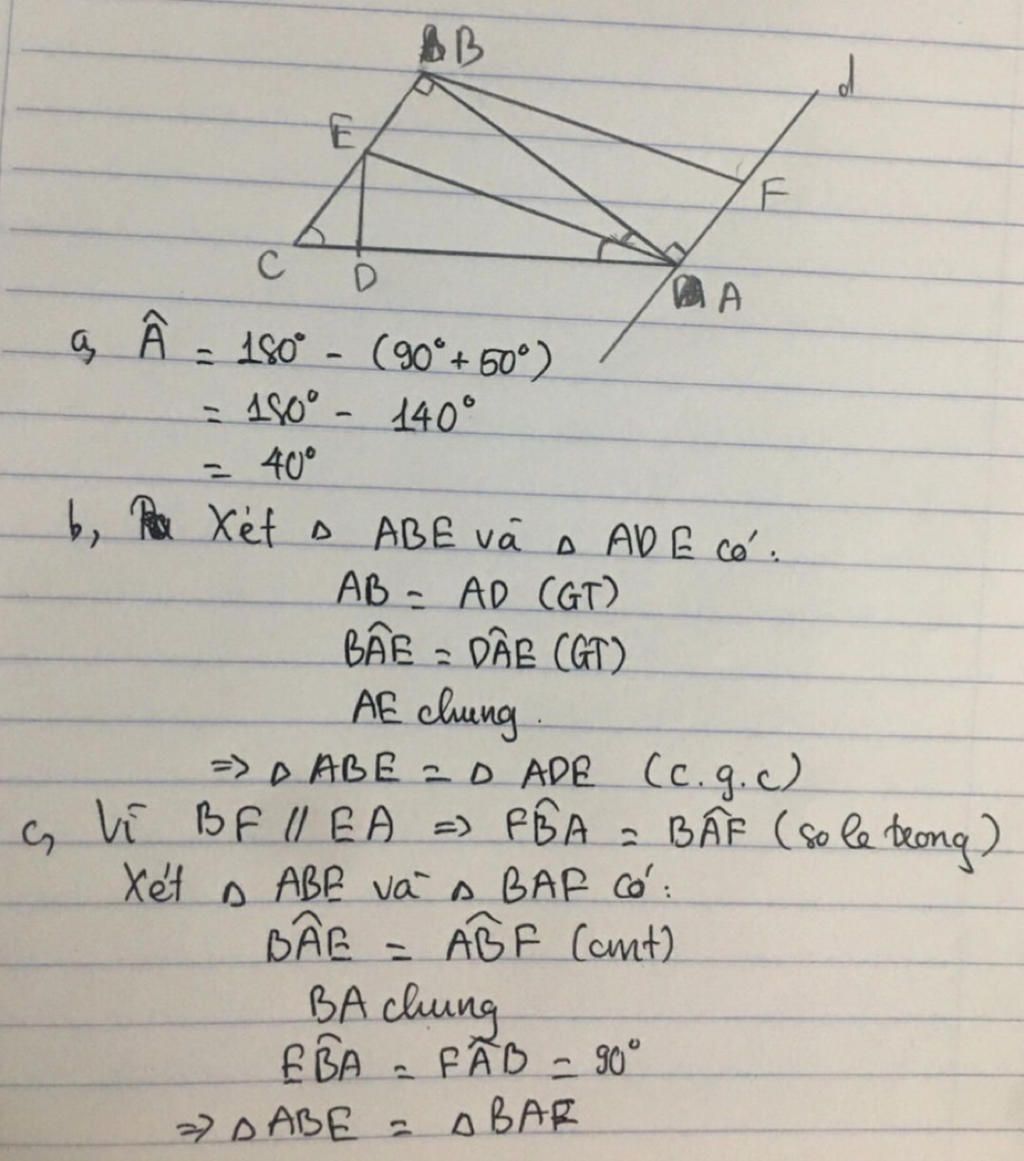 B
d
E
F
C
D
A
a, Â = 180° - (90° + 50°)
= 180° - 140°
= 40°
b, Xét △ ABE và △ ADE có:
AB = AD (GT)
BÂE = DÂE (GT)
AE chung.
=> △ ABE = △ ADE (c.g.c)
c, Vì BF // EA => FB̂A = BÂF (so le trong)
Xét △ ABE và △ BAF có:
BÂE = AB̂F (cmt)
BA chung
EB̂A = FÂB = 90°
=> △ ABE = △ BAF